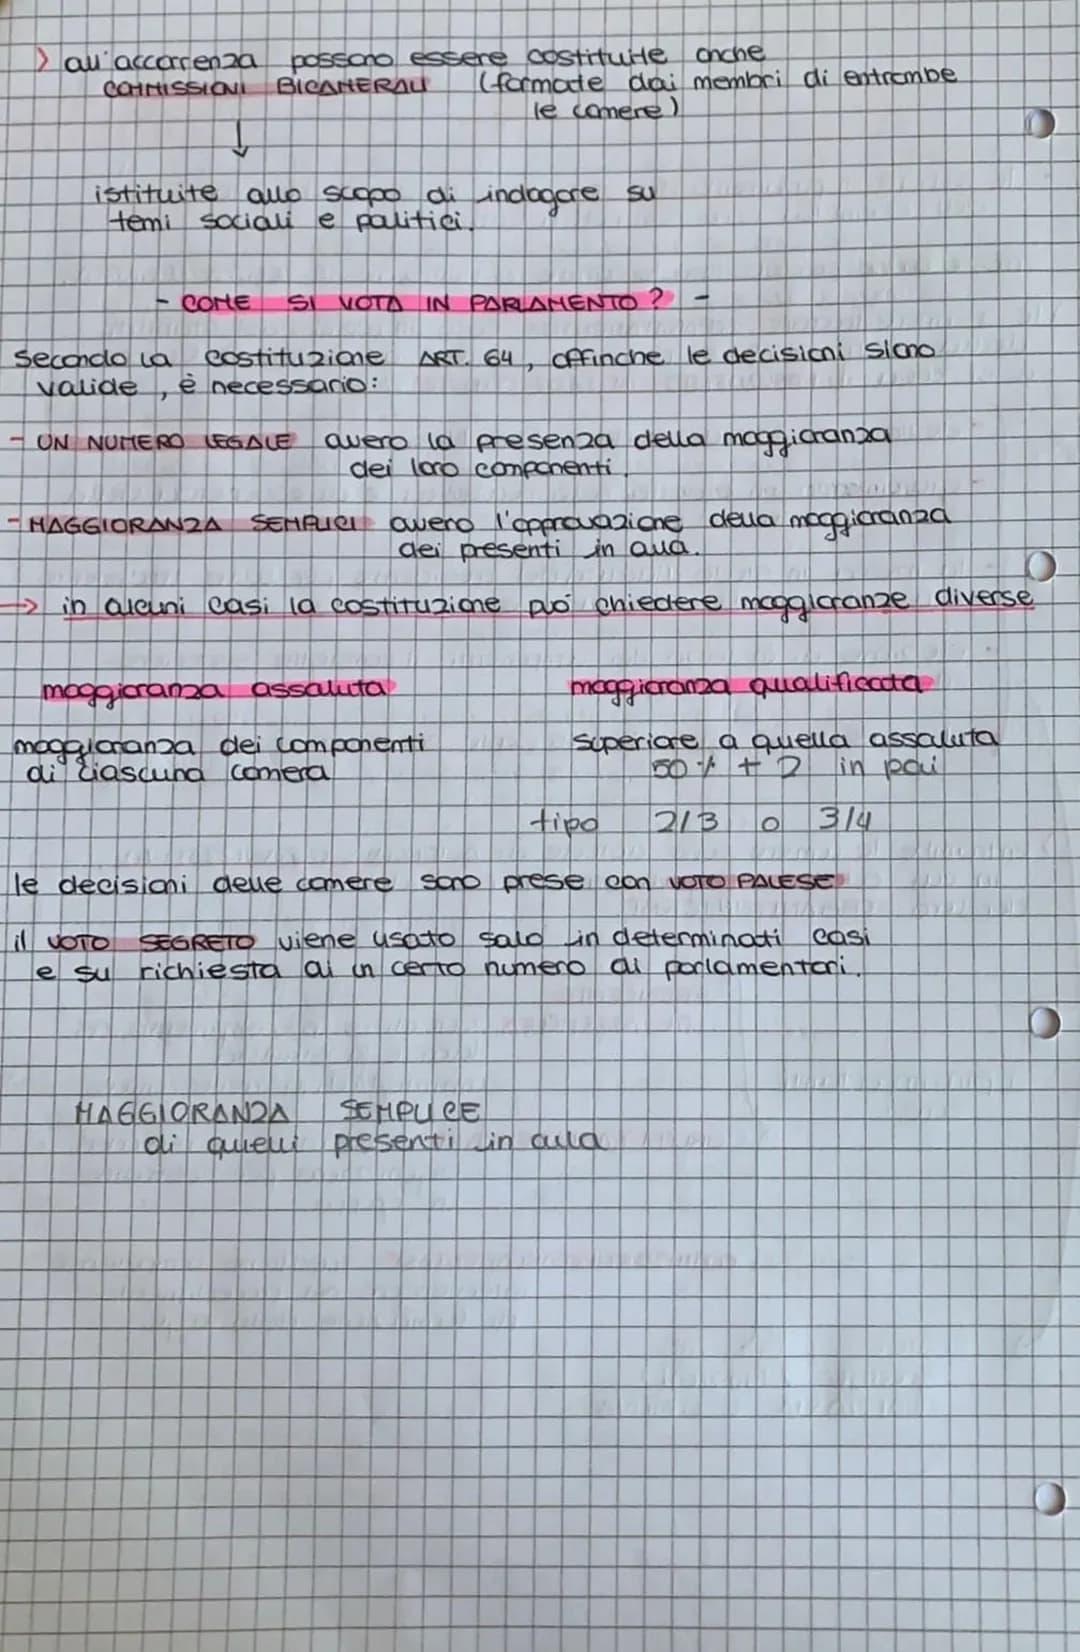 > all'accorrenza possono essere costituite anche
COMMISSIONI BICAMERALI (formate dai membri di entrambe
le camere)
↓
istituite allo scopo di indagare su
temi sociali e politici.
- COME SI VOTA IN PARLAMENTO? -
Secondo la costituzione ART. 64, affinche le decisioni siano
valide, è necessario:
- UN NUMERO LEGALE ovvero la presenza della maggioranza
dei loro componenti.
- MAGGIORANZA SEMPLICI ovvero l'approvazione della maggioranza
dei presenti in aula.
→ in alcuni casi la costituzione può chiedere maggioranze diverse
maggioranza assoluta
maggioranza dei componenti
di ciascuna camera
maggioranza qualificata
superiore a quella assoluta
50% + 2 in poi
tipo 2/3 o 3/4
le decisioni delle camere sono prese con VOTO PALESE
il VOTO SEGRETO viene usato solo in determinati casi
e su richiesta di un certo numero di parlamentari.
MAGGIORANZA SEMPLICE
di quelli presenti in aula